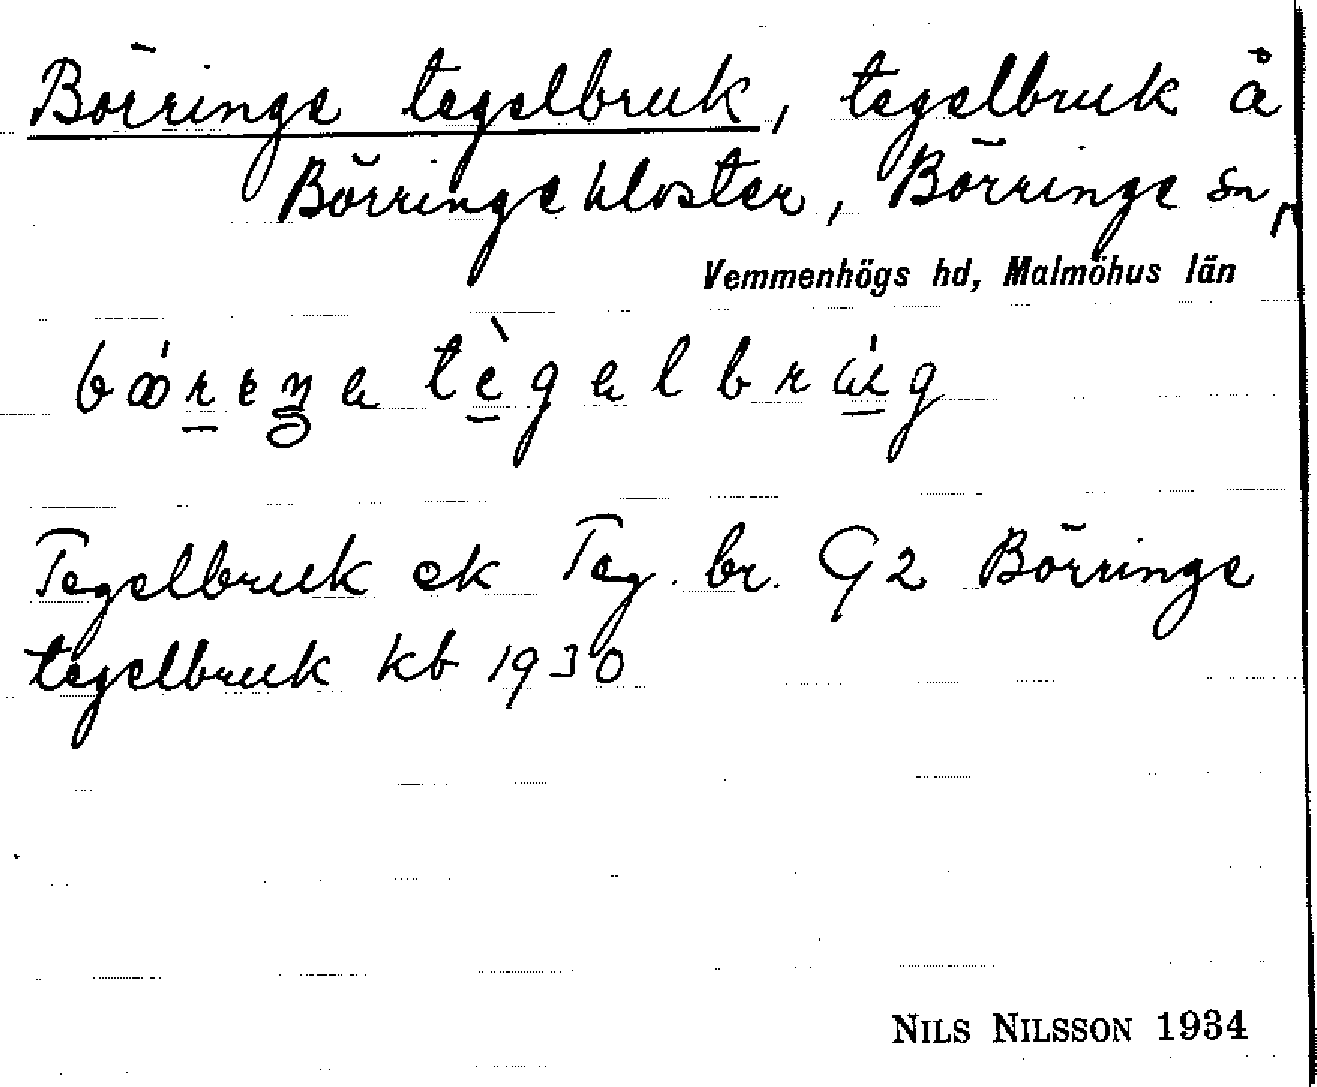 Börringe tegelbruk, tegelbruk å
Börringekloster, Börringe sn,
Vemmenhögs hd, Malmöhus län
Tegelbruk ek Teg. br. G2 Börringe
tegelbruk kb 1930
NILS NILSSON 1934